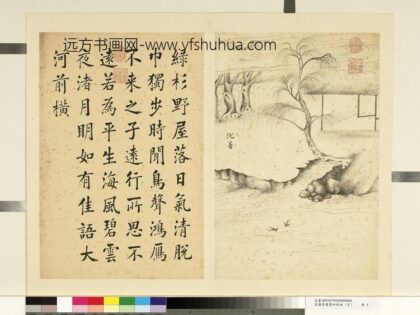 远方书画网 - www.yfshuhua.com
沉著
綠杉野屋落日氣清脫
巾獨步時聞鳥聲鴻雁
不來之子遠行所思不
遠若為平生海風碧雲
夜渚月明如有佳語大
河前橫